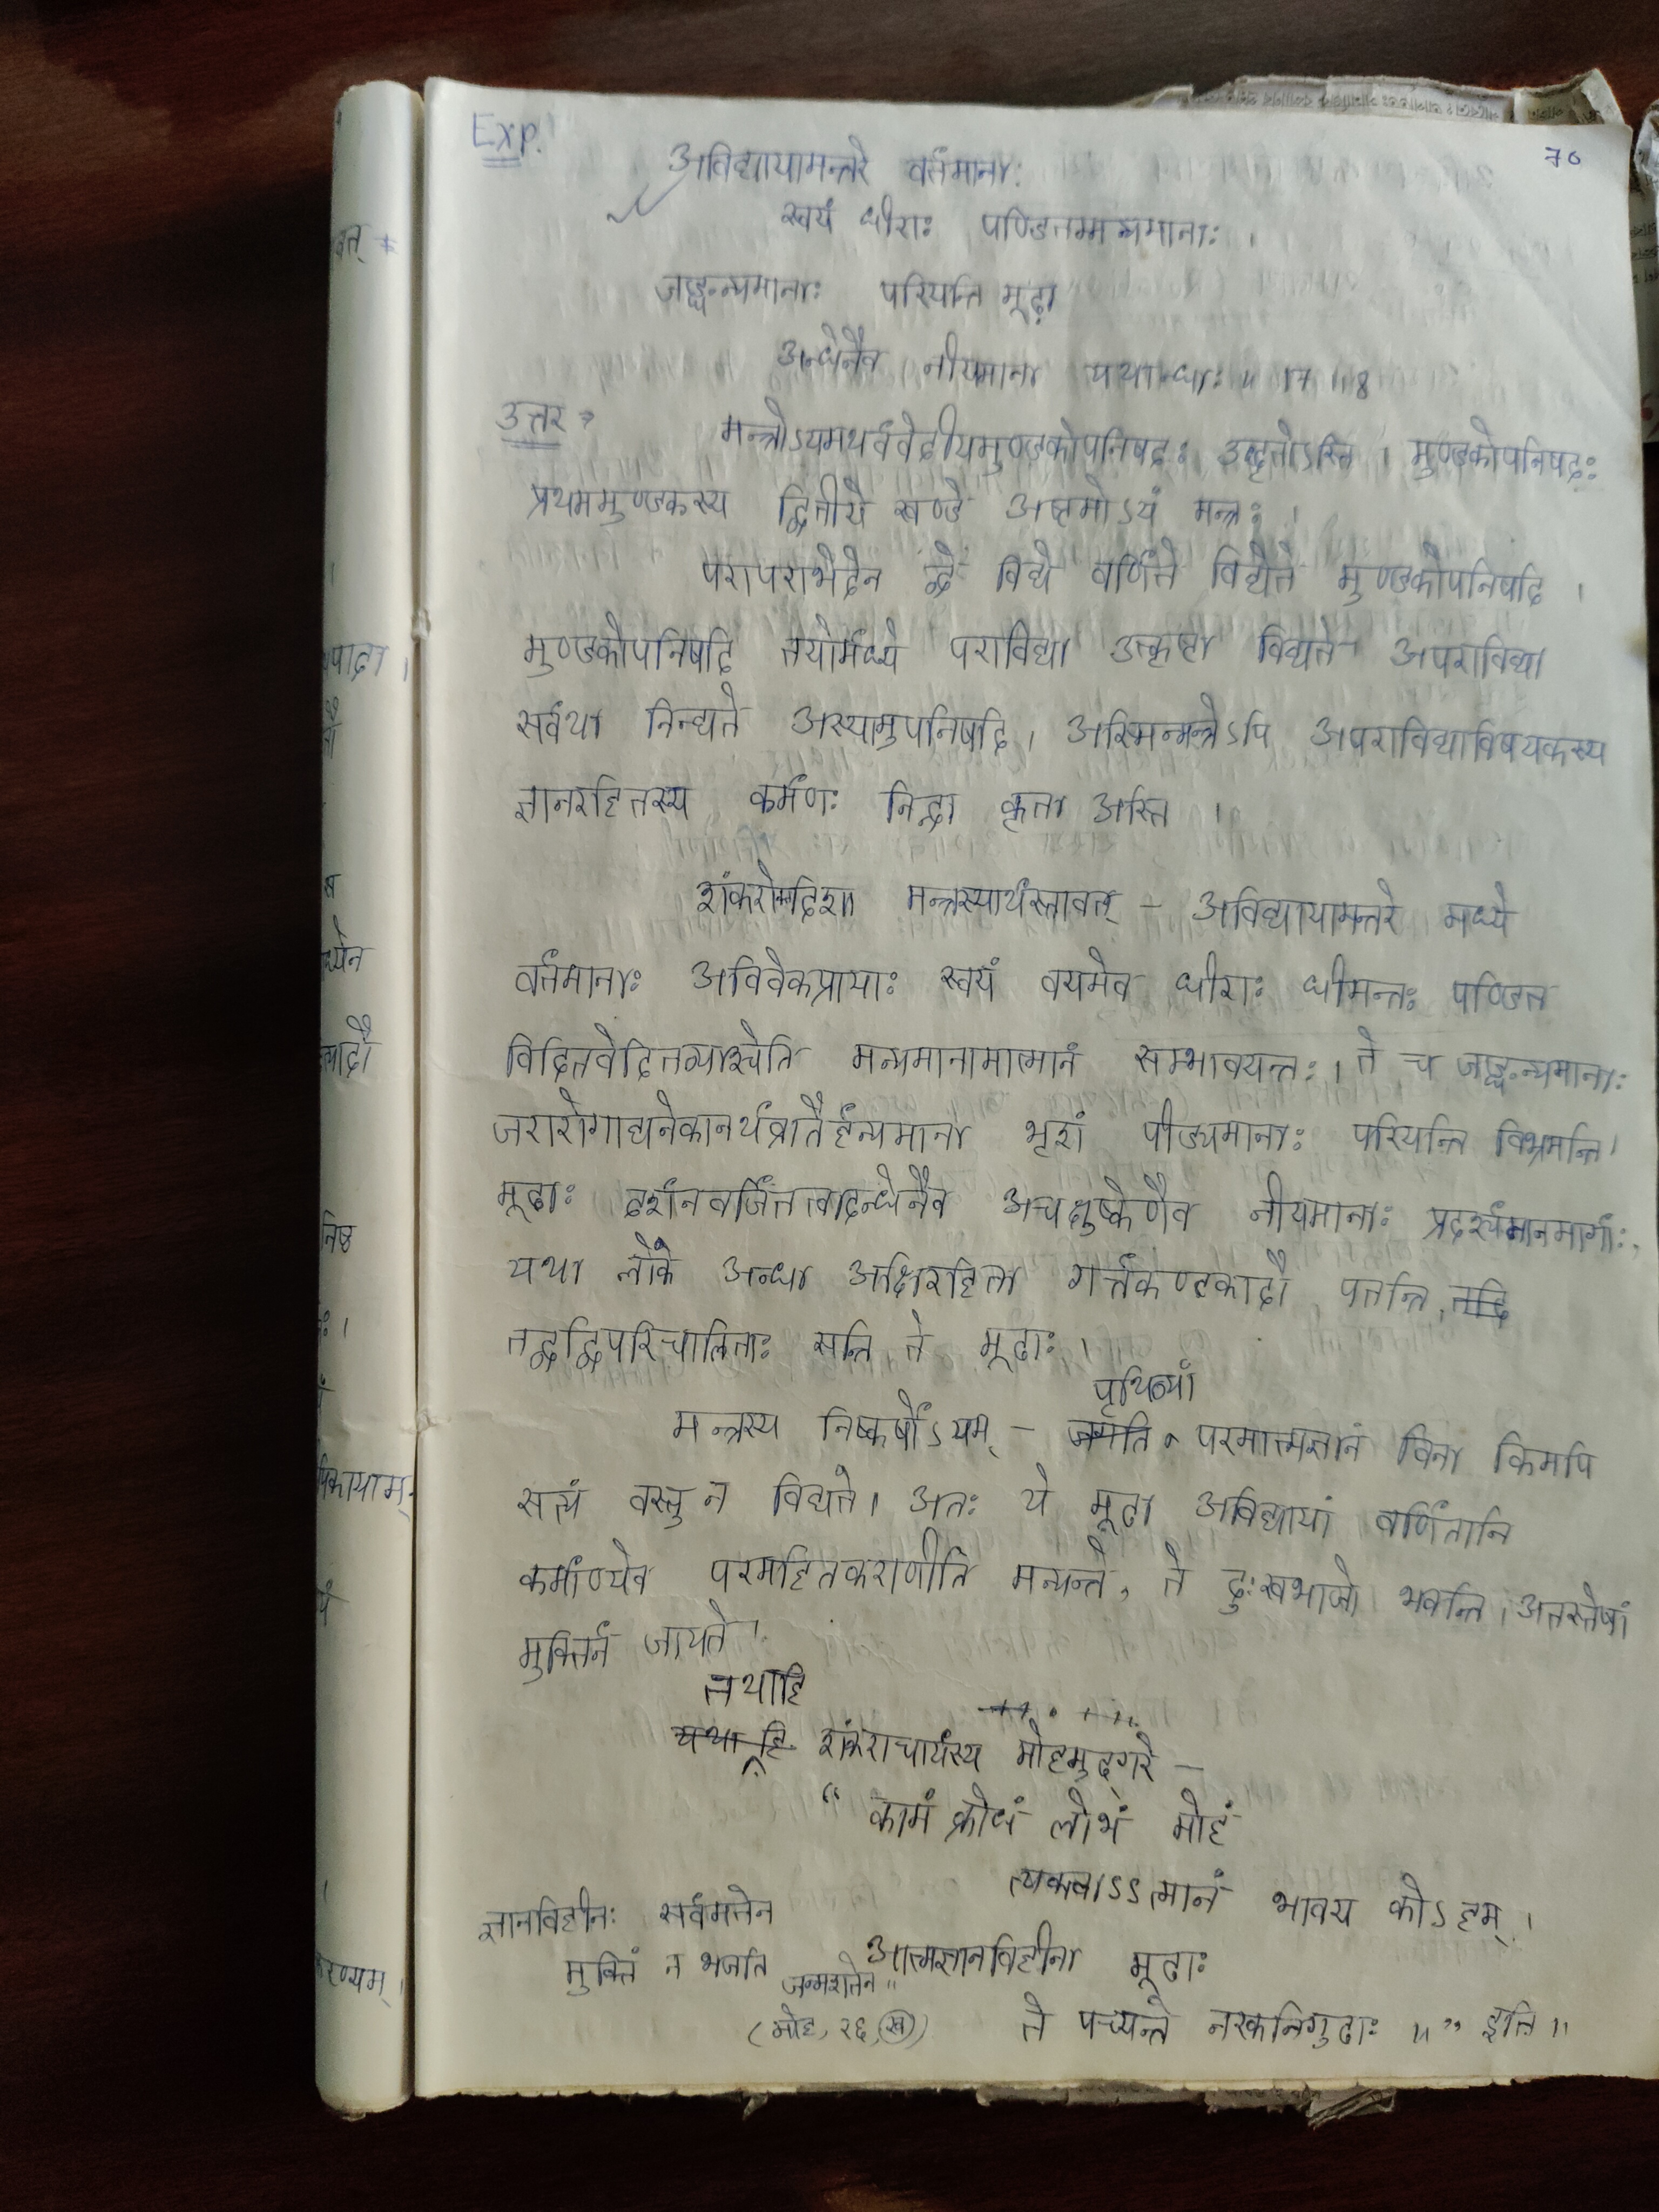 Exp.
70
अविद्यायामन्तरे वर्तमानाः
स्वयं धीराः पण्डितम्मन्यमानाः ।
जङ्घन्यमानाः परियन्ति मूढ़ा
अन्धेनैव नीयमाना यथान्धाः ॥ 17 ॥ 8
उत्तर →
मन्त्रोऽयमथर्ववेदीयमुण्डकोपनिषदः उद्धृतोऽस्ति । मुण्डकोपनिषदः
प्रथममुण्डकस्य द्वितीये खण्डे अष्टमोऽयं मन्त्रः ।
परापराभेदेन द्वे विद्ये वर्णिते विद्येते मुण्डकोपनिषदि ।
मुण्डकोपनिषदि तयोर्मध्ये पराविद्या उत्कृष्टा विद्यते अपराविद्या
सर्वथा निन्द्यते अस्यामुपनिषदि । अस्मिन्मन्त्रेऽपि अपराविद्याविषयकस्य
ज्ञानरहितस्य कर्मणः निन्दा कृता अस्ति ।
मन्त्रस्यार्थस्तावत् - अविद्यायामन्तरे मध्ये
वर्तमानाः अविवेकप्रायाः स्वयं वयमेव धीराः धीमन्तः पण्डित
विदितवेदितव्याश्चेति मन्यमानामात्मानं सम्भावयन्तः । ते च जङ्घन्यमानाः
जरारोगाद्यनेकानर्थव्रातैर्हन्यमाना भृशं पीड्यमानाः परियन्ति विभ्रमन्ति ।
मूढाः दर्शनवर्जितत्वादन्धेनैव अचक्षुष्केणैव नीयमानाः प्रदर्श्यमानमार्गाः,
यथा लोके अन्धा अक्षिरहिता गर्त्तकण्टकादौ पतन्ति,
तद्वद्विपरिचालिताः सन्ति ते मूढाः ।
पृथिव्यां
मन्त्रस्य निष्कर्षोऽयम् - जगति परमात्मज्ञानं विना किमपि
सत्यं वस्तु न विद्यते । अतः ये मूढा अविद्यायां वर्णितानि
कर्माण्येव परमहितकराणीति मन्यन्ते, ते दुःखभाजो भवन्ति । अतस्तेषां
मुक्तिर्न जायते ।
तथाहि
यथा हि शंकराचार्यस्य मोहमुद्गरे —
“ कामं क्रोधं लोभं मोहं
त्यक्त्वाऽऽत्मानं भावय कोऽहम् ।
आत्मज्ञानविहीना मूढाः
ते पच्यन्ते नरकनिगुढाः ॥” इति ॥
ज्ञानविहीनः सर्वमतेन
मुक्तिं न भजति जन्मशतेन "
(मोह, २६, ख)